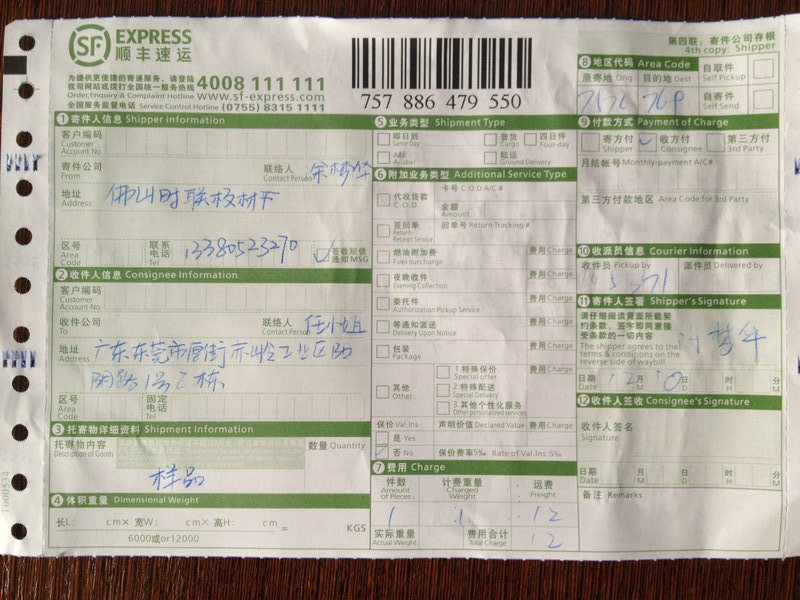 SF EXPRESS
顺丰速运
为提供更便捷的寄递服务，请登陆
我司网站或拨打全国统一服务热线 4008 111 111
Order, Enquiry & Complaint Hotline www.sf-express.com
全国服务监督电话 Service Control Hotline (0755) 8315 1111
757 886 479 550
第四联：寄件公司存根
4th copy: Shipper
1 寄件人信息 Shipper information
客户编码
Customer
Account No.
寄件公司
From
联络人
Contact Person
地址
Address
佛山时联板材下
区号
Area
Code
联系
电话
Tel
13380523270
签收短信
通知MSG
2 收件人信息 Consignee Information
客户编码
Customer
Account No.
收件公司
To
联络人
Contact Person
任小姐
地址
Address
广东东莞市厚街
工业区
区号
Area
Code
固定
电话
Tel
3 托寄物详细资料 Shipment Information
托寄物内容
Description of Goods
数量 Quantity
样品
4 体积重量 Dimensional Weight
长L: cm× 宽W: cm× 高H: cm = KGS
6000或or12000
5 业务类型 Shipment Type
即日到
Same Day
普货
Cargo
四日件
Four-day
A标
A-label
陆运
Ground Delivery
6 附加业务类型 Additional Service Type
代收货款
C.O.D
卡号 C.O.D A/C#
金额
Amount
签回单
Return
Receipt Service
回单号 Return Tracking #
燃油附加费
Fuel surcharge
费用 Charge
夜晚收件
Evening Collection
费用 Charge
委托件
Authorization Pickup Service
费用 Charge
等通知派送
Delivery Upon Notice
费用 Charge
包装
Package
费用 Charge
其他
Other
1.特殊保价
Special offer
费用 Charge
2.特殊配送
Special Delivery
费用 Charge
3.其他个性化服务
Other personalized services
费用 Charge
保价 Val Ins
声明价值 Declared Value
费用 Charge
是 Yes
否 No
保价费率5‰ Rate of Val.Ins:5‰
7 费用 Charge
件数
Amount
of Pieces
计费重量
Charged
Weight
运费
Freight
1 1 12
实际重量
Actual Weight
费用合计
Total Charge
12
8 地区代码 Area Code
原寄地 Orig
目的地 Dest
自取件
Self Pickup
757 769
自寄件
Self Send
9 付款方式 Payment of Charge
寄方付
Shipper
收方付
Consignee
第三方付
3rd Party
月结帐号 Monthly-payment A/C#
第三方付款地区 Area Code for 3rd Party
10 收派员信息 Courier Information
收件员 Pickup by
派件员 Delivered by
11 寄件人签署 Shipper's Signature
请仔细阅读背面所载契
约条款，签字即同意接
受条款的一切内容
The shipper agrees to the
terms & conditions on the
reverse side of waybill
日期
Date
12 月
M
10 日
D
时
H
分
M
12 收件人签收 Consignee's Signature
收件人签名
Signature
日期
Date
月
M
日
D
时
H
分
M
备注 Remarks
T000534